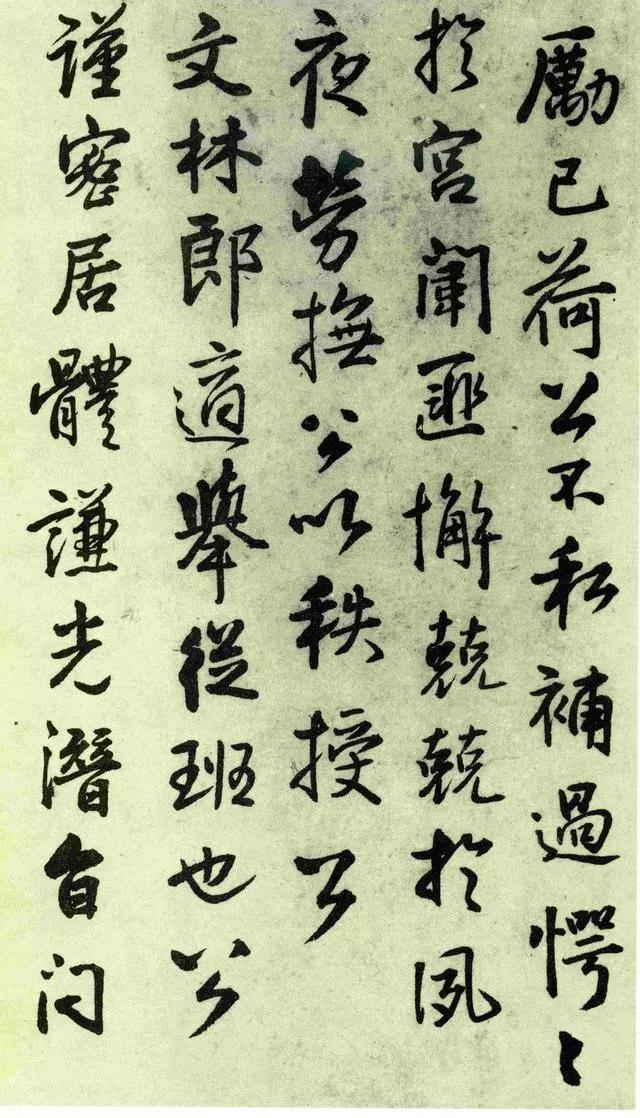 厲己荷公不私補過愕〻
於宮闈匪懈兢兢於夙
夜勞撫公以秩授公
文林郎適舉從班也公
謹密居體謙光潛自閇